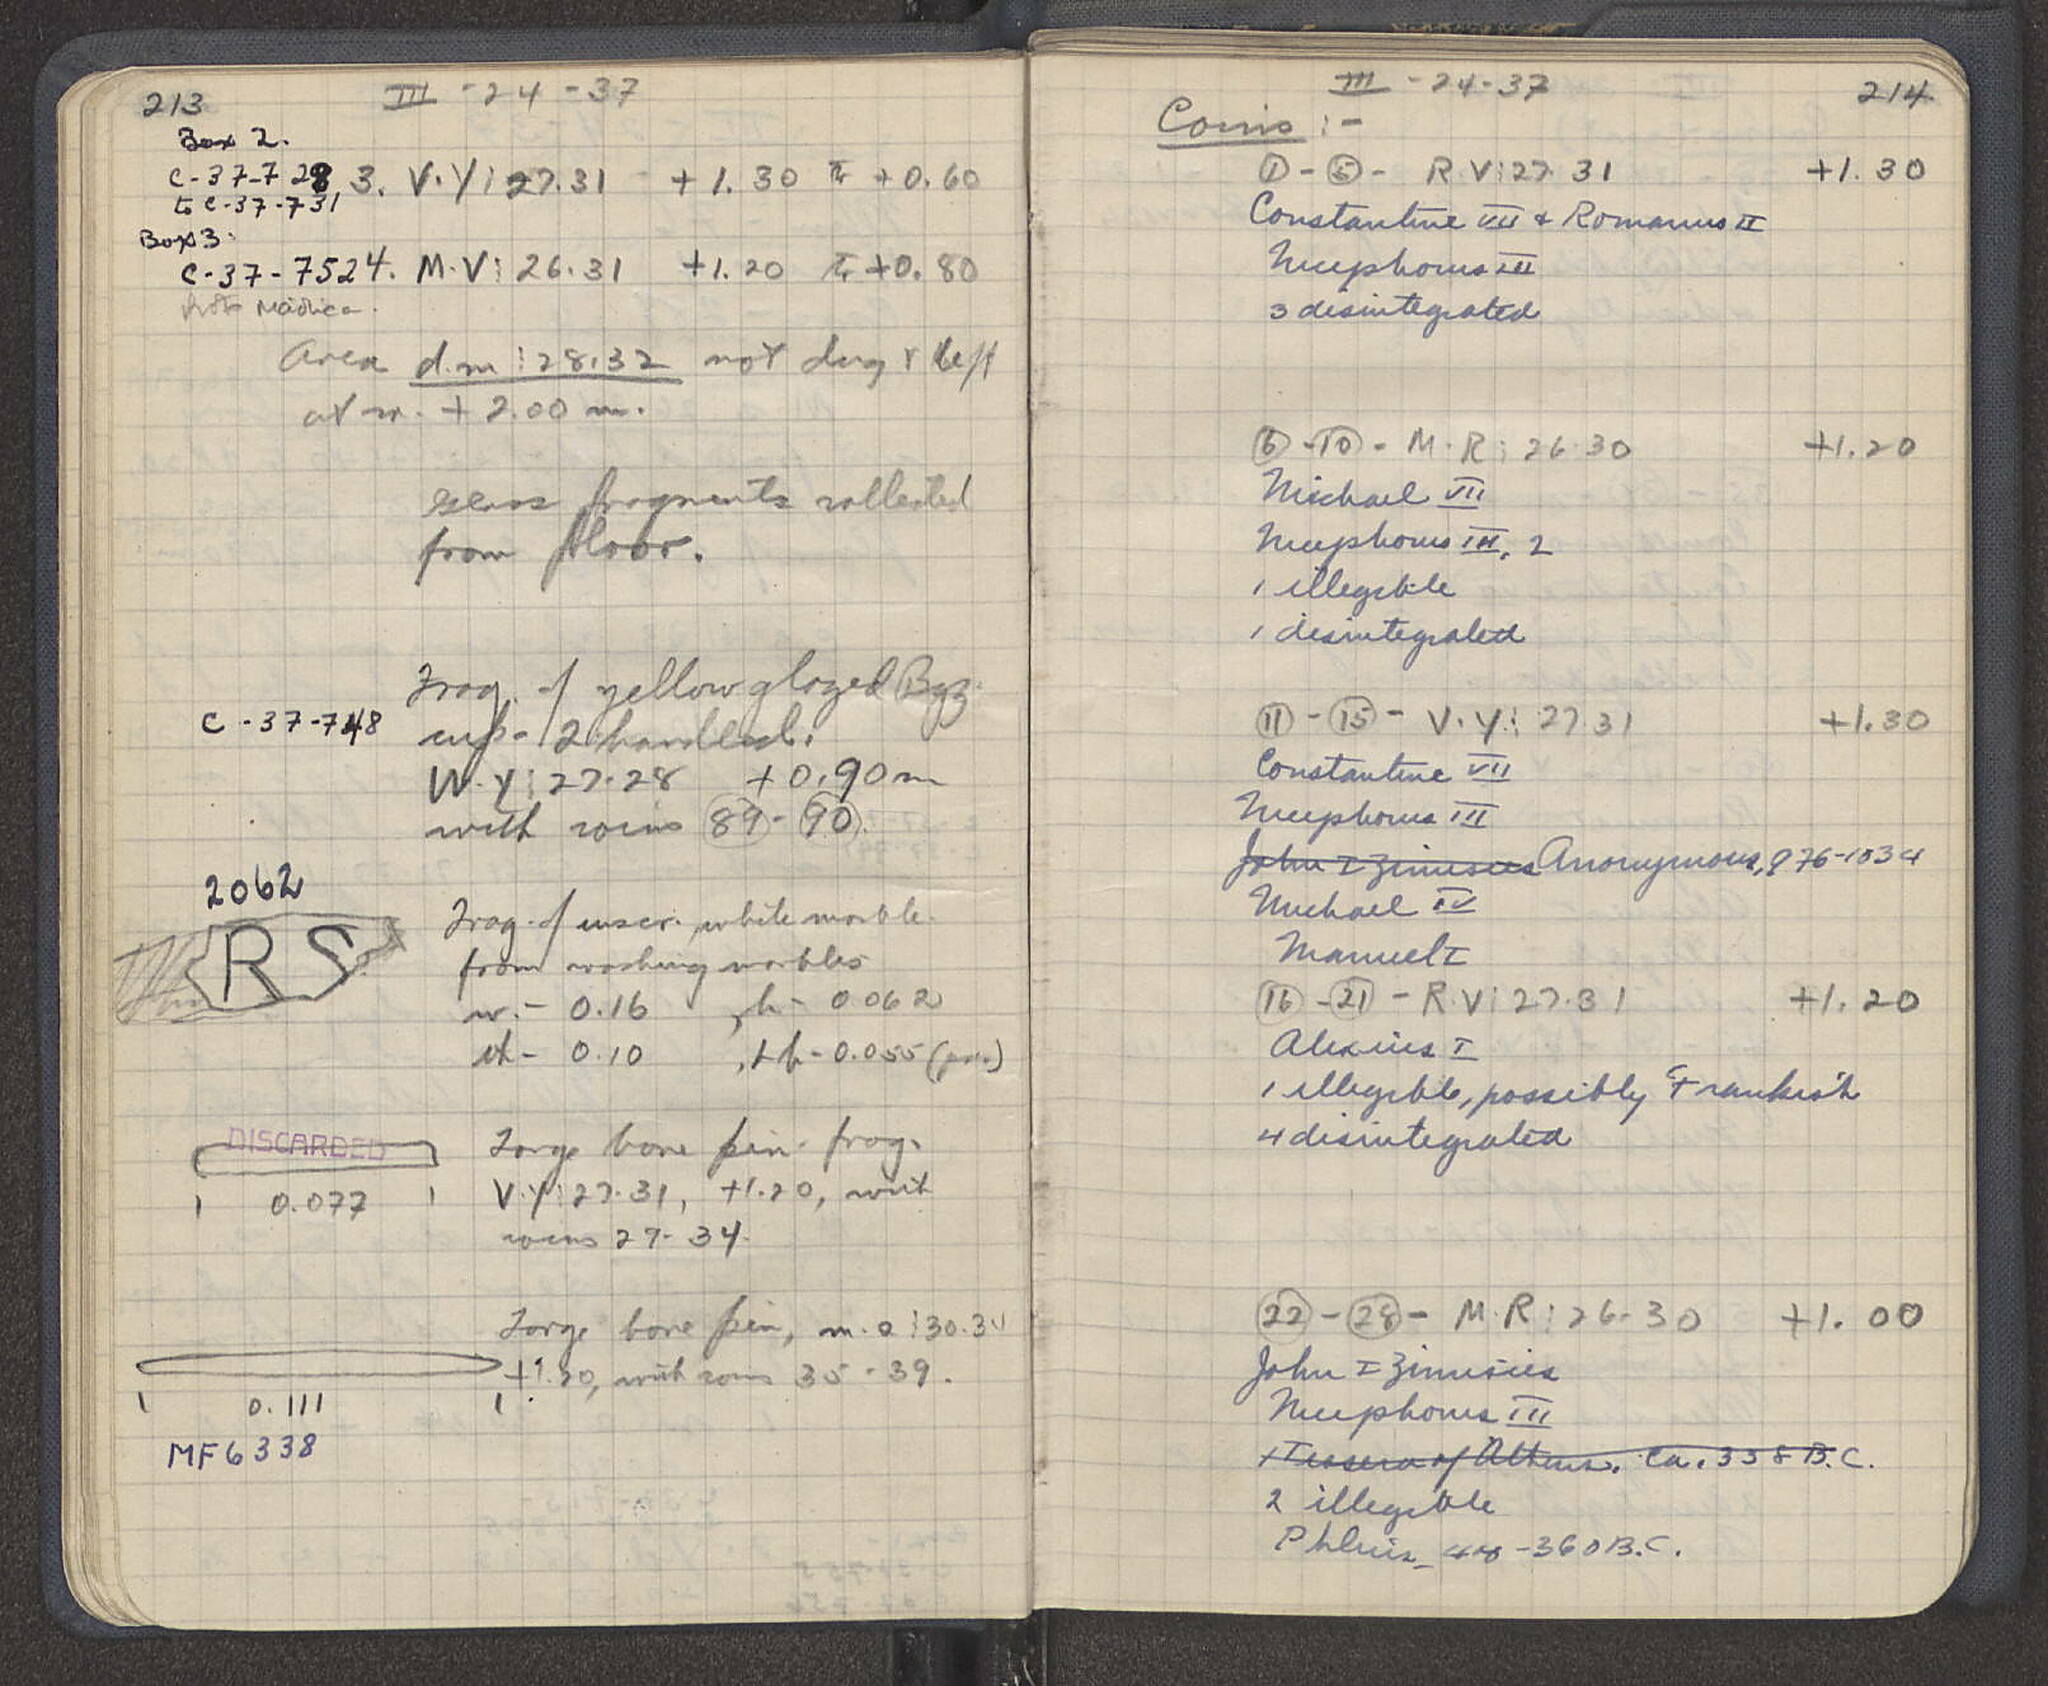 213
III - 24 - 37
Box 2.
C-37-728 3. V.Y: 27.31 +1.30 to +0.60
to C-37-731
Box 3:
C-37-752 4. M-V: 26.31 +1.20 to +0.80
Area d.m: 28.32 not dug & left
at + 2.00 m.
glass fragments collected
from floor.
Frag. of yellow glazed Byz.
C-37-748
cup - 2 handled.
W.Y: 27.28 +0.90 m
with coins 89 - 90.
2062
RS
Frag. of inscr., white marble
from washing marbles
w. - 0.16, h - 0.062
th - 0.10, Lh - 0.055 (pres.)
DISCARDED
Large bone pin - frag.
V.Y: 27.31, +1.20, with
0.077
coins 29 - 34.
Large bone pin, m.o: 30.34
+1.20, with coins 35 - 39.
0.111
MF 6338
III - 24 - 37
214
Coins :-
1 - 5 - R.V: 27.31 +1.30
Constantine VII & Romanus II
Nicephorus III
3 disintegrated
6 - 10 - M.R: 26.30 +1.20
Michael VII
Nicephorus III, 2
1 illegible
1 disintegrated
11 - 15 - V.Y: 27.31 +1.30
Constantine VII
Nicephorus III
John I Zimisces Anonymous, 976-1034
Michael IV
Manuel I
16 - 21 - R.V: 27.31 +1.20
Alexius I
1 illegible, possibly Frankish
4 disintegrated
22 - 28 - M.R: 26.30 +1.00
John I Zimisces
Nicephorus III
1 Tessera of Athens. Ca. 338 B.C.
2 illegible
Phlius -360 B.C.